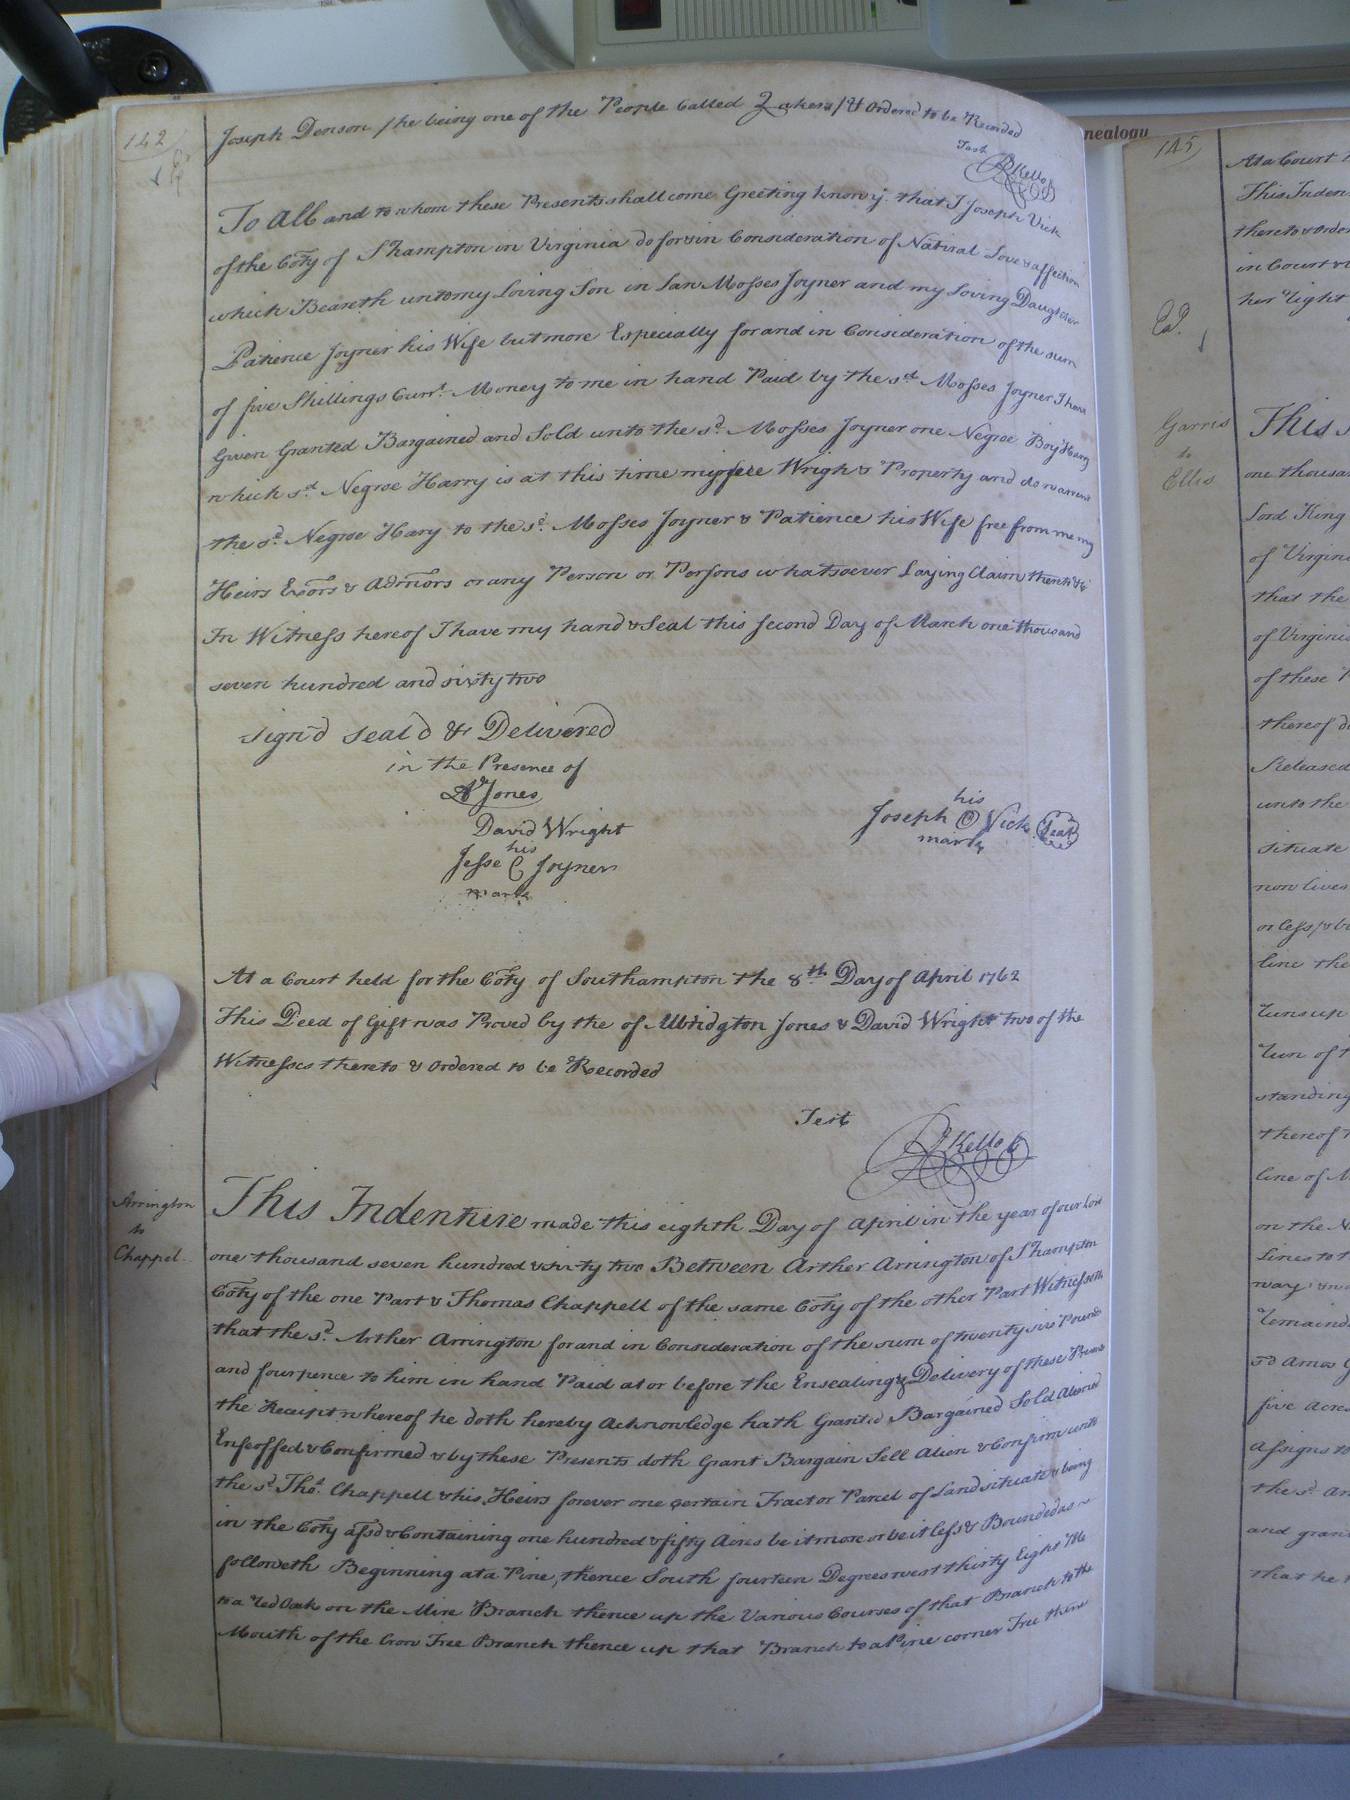 142
Joseph Denson / he being one of the People Called Quakers / & Ordered to be Recorded
Test
R Kello
To All and to whom these Presents shall come Greeting know y. that I Joseph Vick
of the Coty of S Thampton in Virginia do for & in Consideration of Natiral Love & affection
which Beareth unto my Loving Son in Law Mosses Joyner and my Loving Daughter
Patience Joyner his Wife but more Especially for and in Consideration of the sum
of five Shillings Curr.t Money to me in hand Paid by the s.d Mosses Joyner I have
Given Granted Bargained and Sold unto the s.d Mosses Joyner one Negroe Boy Harry
which s.d Negroe Harry is at this time my Wright & Property and do warrant
the s.d Negroe Hary to the s.d Mosses Joyner & Patience his Wife free from me my
Heirs Exors & Admors or any Person or Persons whatsoever Laying Claim
In Witness hereof I have my hand & Seal this second Day of March one thousand
seven hundred and sixty two
Sign'd Seal'd & Delivered
in the Presence of
A Jones
David Wright
his
Jesse C Joyner
mark
his
Joseph O Vick Seal
mark
At a Court held for the Coty of Southampton the 8th Day of April 1762
This Deed of Gift was Proved by the of Albridgton Jones & David Wright two of the
Witnesses thereto & Ordered to be Recorded
Test
R Kello
Arrington
to
Chappel
This Indenture made this eighth Day of April in the year of our Lord
one thousand seven hundred & sixty two Between Arther Arrington of S Thampton
Coty of the one Part & Thomas Chappell of the same Coty of the other Part Witnesseth
that the s.d Arther Arrington for and in Consideration of the sum of twenty six Pounds
and fourpence to him in hand Paid at or before the Ensealing & Delivery of these
the Receipt whereof he doth hereby Acknowledge hath Granted Bargained Sold Aliened
Enfeoffed & Confirmed & by these Presents doth Grant Bargain Sell Alien & Confirm unto
the s.d Tho.s Chappell & his Heirs forever one certain Tract or Parcel of Land situate & being
in the Coty afsd & Containing one hundred & fifty Acres be it more or be it less & Bounded as
followeth Beginning at a Pine, thence South fourteen Degrees west thirty Eight
to a Red Oak on the Mire Branch thence up the Various Courses of that Branch to the
Mouth of the Crow Tree Branch thence up that Branch to a Pine corner Tree
145
At a Court
This Inden
thereto & Order
in Court &
her right
Garris
to
Ellis
This
one thousan
Lord King
of Virgin
that the
of Virginia
of these
thereof
Released
unto the
situate
non lives
or less
line the
Runs up
Run of
standing
thereof
line of
on the
Lines to
way
Remaind
s.d Amos
five Acres
Assigns to
the s.d
and gran
that he
nealogy